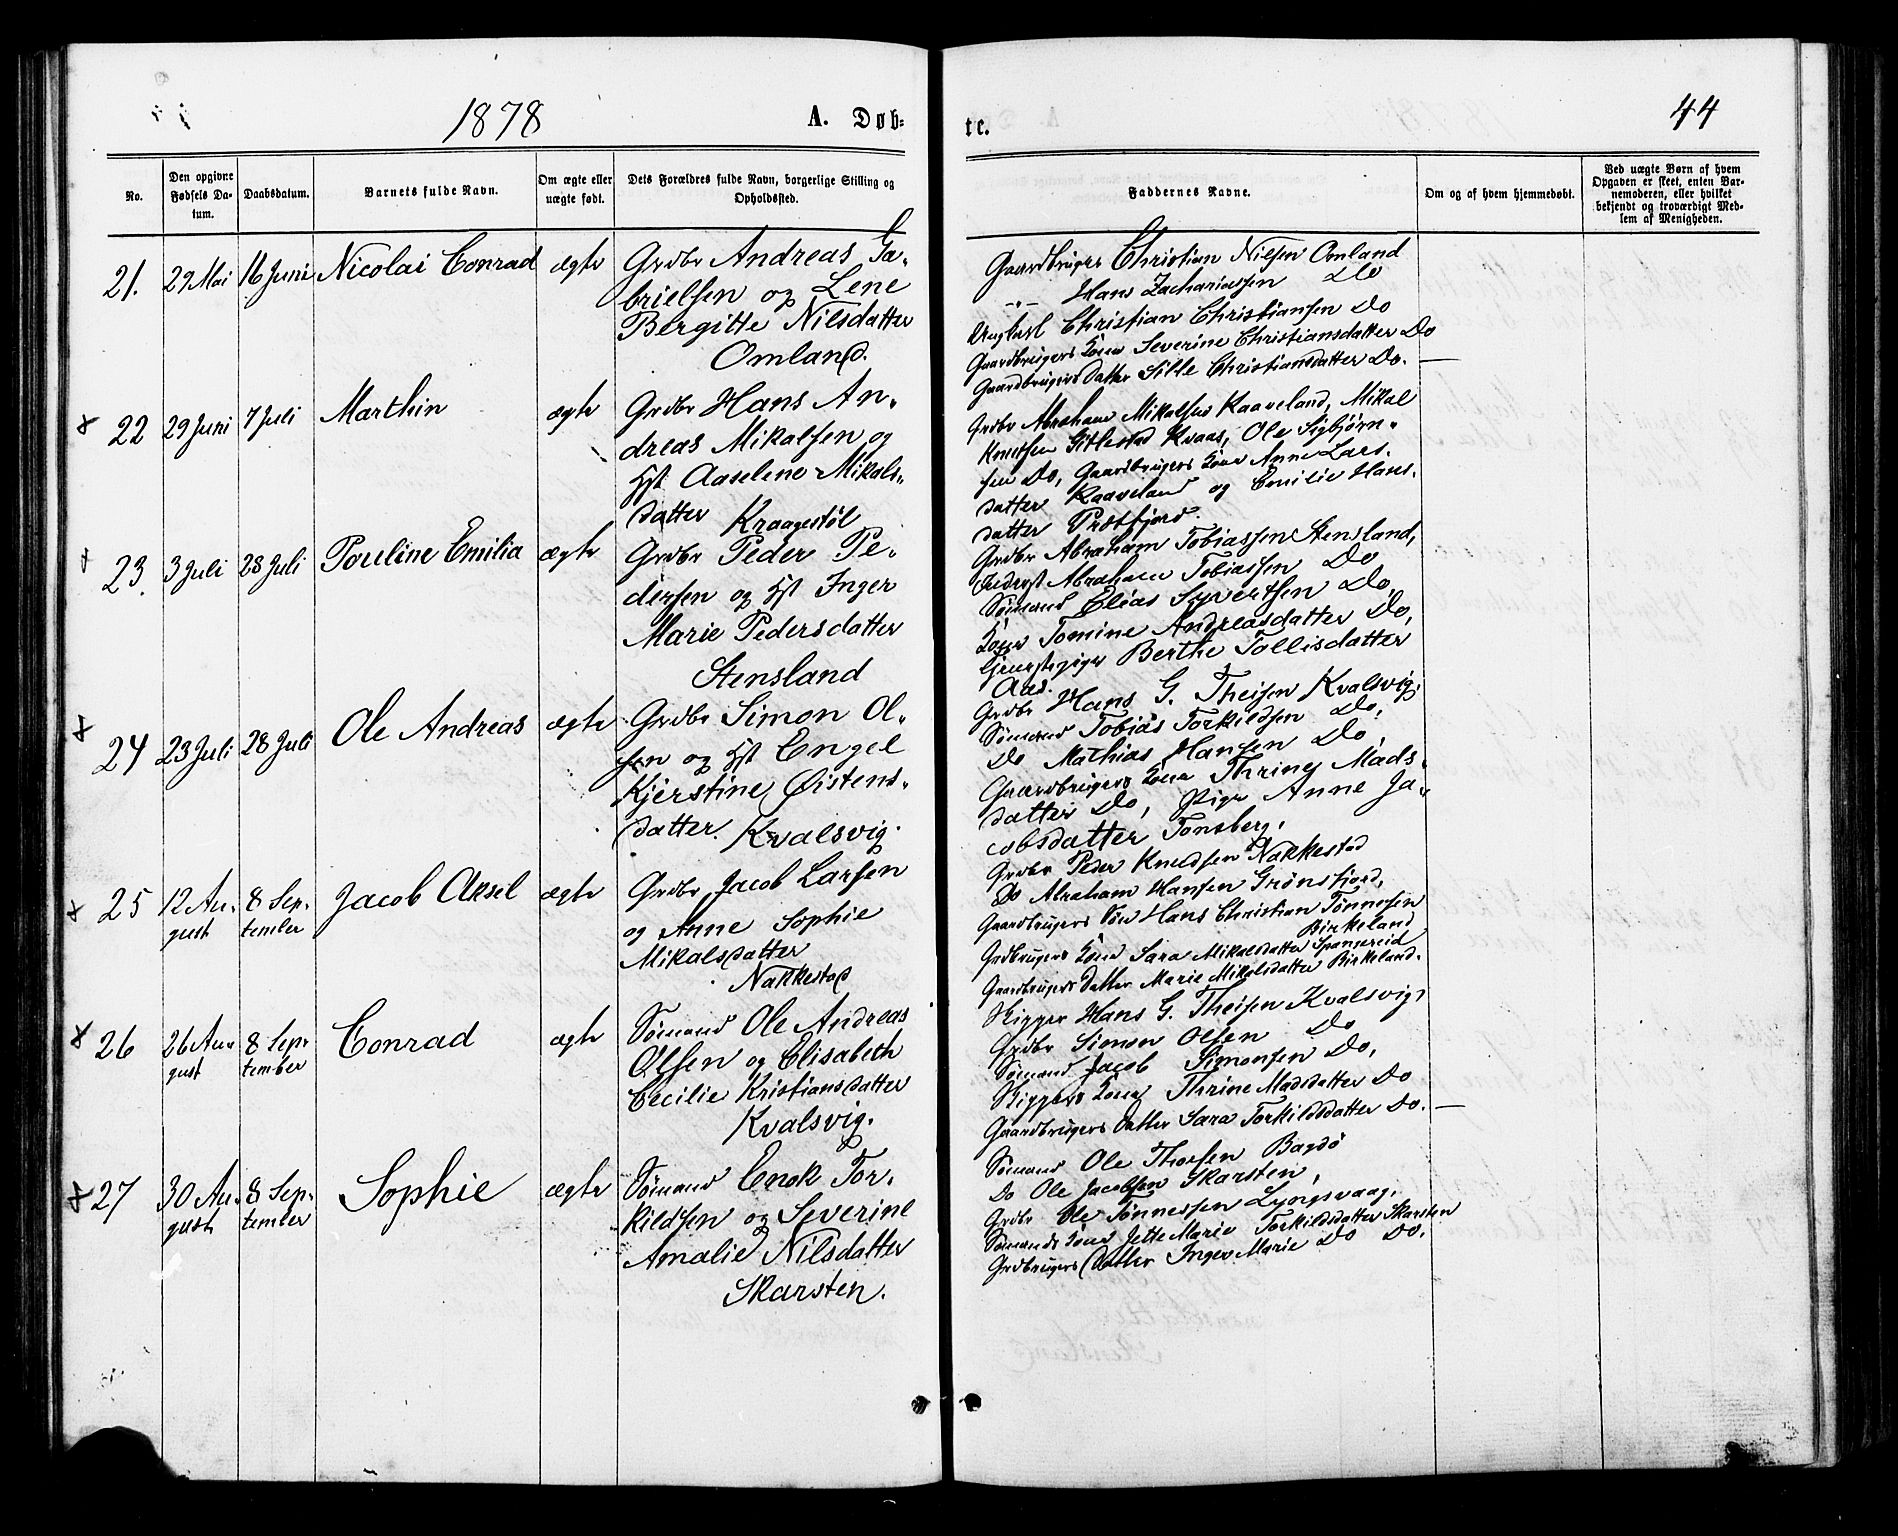 1878
A. Døb-
te.
44
No.
Den opgivne Fødsels Da-
tum.
Daabsdatum.
Barnets fulde Navn.
Om ægte eller uægte født.
Dets Forældres fulde Navn, borgerlige Stilling og Opholdssted.
Faddernes Navne.
Om og af hvem hjemmedøbt.
Ved uægte Børn af hvem
Opgaven er skeet, enten Bar-
nemoderen, eller hvilket
bekjendt og troværdigt Med-
lem af Menigheden.
21. 29 Mai 16 Juni Nicolai Conrad ægte
Grdbr Andreas Ga-
brielsen og Lene
Bergitte Nilsdatter
Omland.
Gaardbruger Christian Nielsen Omland
-"- Hans Zachariassen Do
Ungkarl Christian Christiansen Do
Gaardbrugers Kone Severine Christiansdatter Do
Gaardbrugers Datter Sille Christiansdatter Do. —
x 22 29 Juni 7 Juli Marthin ægte
Grdbr Hans An-
dreas Mikalsen og
Hst Aaselene Mikals-
datter Kraagestøl
Grdbr Abraham Mikalsen Kaaveland, Mikal
Knudsen Gitlestad Kvaas, Ole Sigbjørn-
sen Do, Gaardbrugers Kone Anne Lars-
datter Kaaveland og Emilie Hans-
datter Præstfjord.
23. 3 Juli 28 Juli Pouline Emilia ægte
Grdbr Peder Pe-
dersen og Hst Inger
Marie Pedersdatter
Stensland
Grdbr Abraham Tobiassen Stensland,
Abraham Tobiassen Do
Sømand Elias Syvertsen Do,
Kone Tomine Andreasdatter Do,
Berthe Tollisdatter
Aas.
x 24 23 Juli 28 Juli Ole Andreas ægte
Grdbr Simon Ol-
sen og Hst Engel
Kjerstine Øistens-
datter. Kvalsvig.
Grdbr Hans G. Theisen Kvalsvig,
Sømand Tobias Torkildsen Do,
Do Mathias Hansen Do,
Gaardbrugers Kone Thriney Mads-
datter Do, Pige Anne Ja-
cobsdatter Tonsberg.
x 25 12 Au-
gust 8 Sep-
tember Jacob Aksel ægte
Grdbr Jacob Larsen
og Anne Sophie
Mikalsdatter
Nakkestad
Grdbr Peder Knudsen Nakkestad
Do Abraham Hansen Grønsfjord,
Gaardbrugers Søn Hans Christian Tønnesen
Birkeland
Grdbrugers Kone Sara Mikalsdatter Spangereid
Gaardbrugers Datter Marie Mikalsdatter Birkeland.
x 26 26 Au-
gust 8 Sep-
tember Conrad ægte
Sømand Ole Andreas
Olsen og Elisabeth
Cecilie Kristiansdatter
Kvalsvig.
Skipper Hans G. Theisen Kvalsvig,
Grdbr Simon Olsen Do
Sømand Jacob Simonsen Do,
Skippers Kone Thrine Madsdatter Do
Gaardbrugers Datter Sara Torkildsdatter Do. —
x 27 30 Au-
gust 8 Sep-
tember Sophie ægte
Sømand Enok Tor-
kildsen og Severine
Amalie Nilsdatter
Skarsten.
Sømand Ole Thorsen Bagdø
Do Ole Jacobsen Skarsten,
Grdbr Ole Tønnessen Lyngsvaag,
Sømands Kone Jette Marie Torkildsdatter Skarsten
Grdbrugers Datter Inger Marie Do Do.